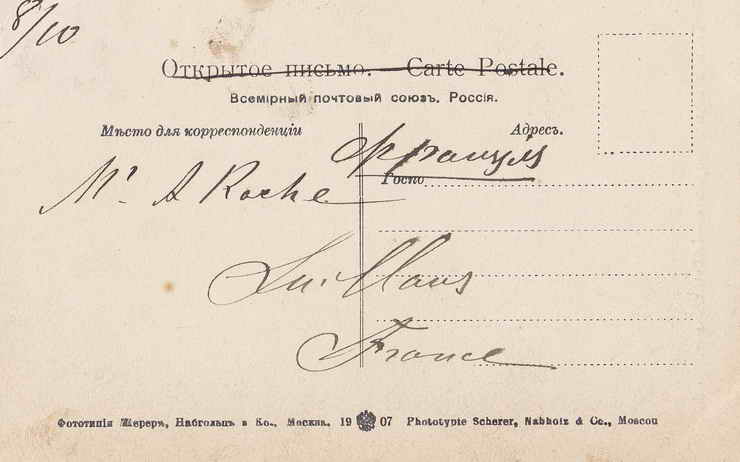 8/10
Открытое письмо. Carte Postale.
Всемірный почтовый союзъ. Россія.
Мѣсто для корреспонденціи
Адресъ.
Франція
Госпо
Mr A Roche
France
Фототипія Шереръ, Набгольцъ и Ко., Москва. 1907 Phototypie Scherer, Nabholz & Co., Moscou